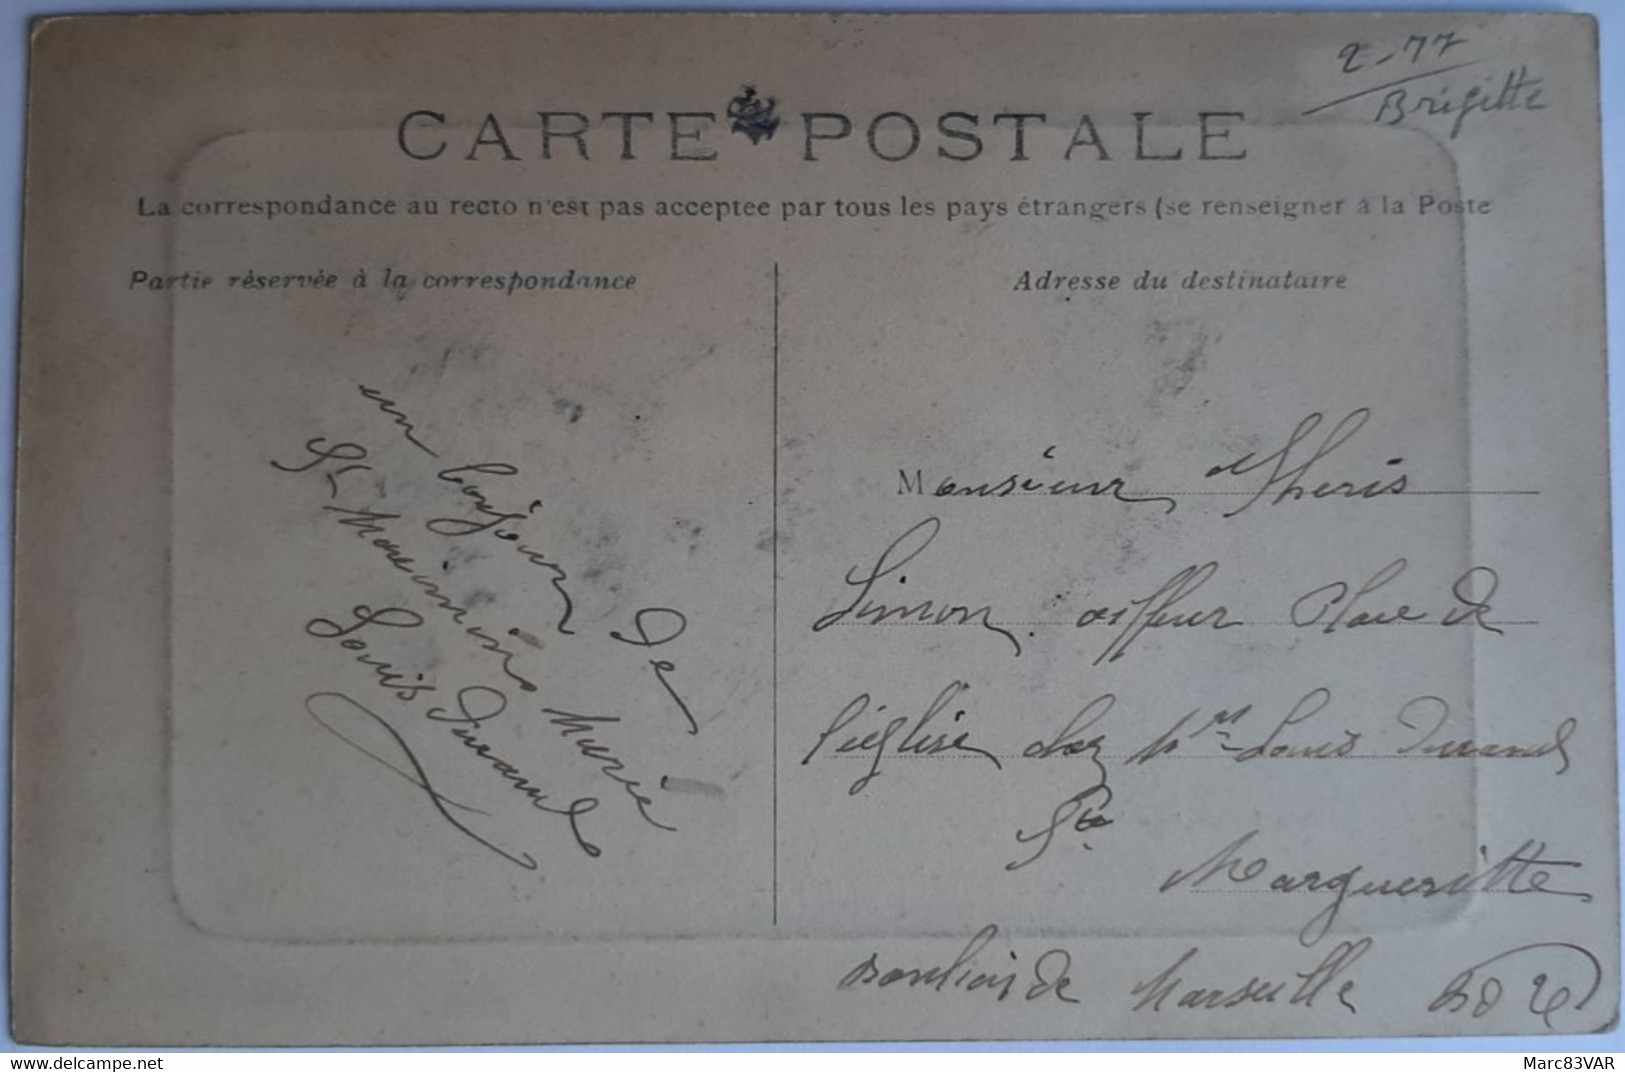 2-77
Brigitte
CARTE POSTALE
La correspondance au recto n'est pas acceptee par tous les pays étrangers (se renseigner à la Poste
Partie réservée à la correspondance
Adresse du destinataire
un bonjour de
St Maximin Marie
Louis Durand
Monsieur Theris
Simon coiffeur Place de
l'église chez Mme Louis Durand
Ste
Margueritte
Banlieu de Marseille
Marc83VAR
delcampe.net